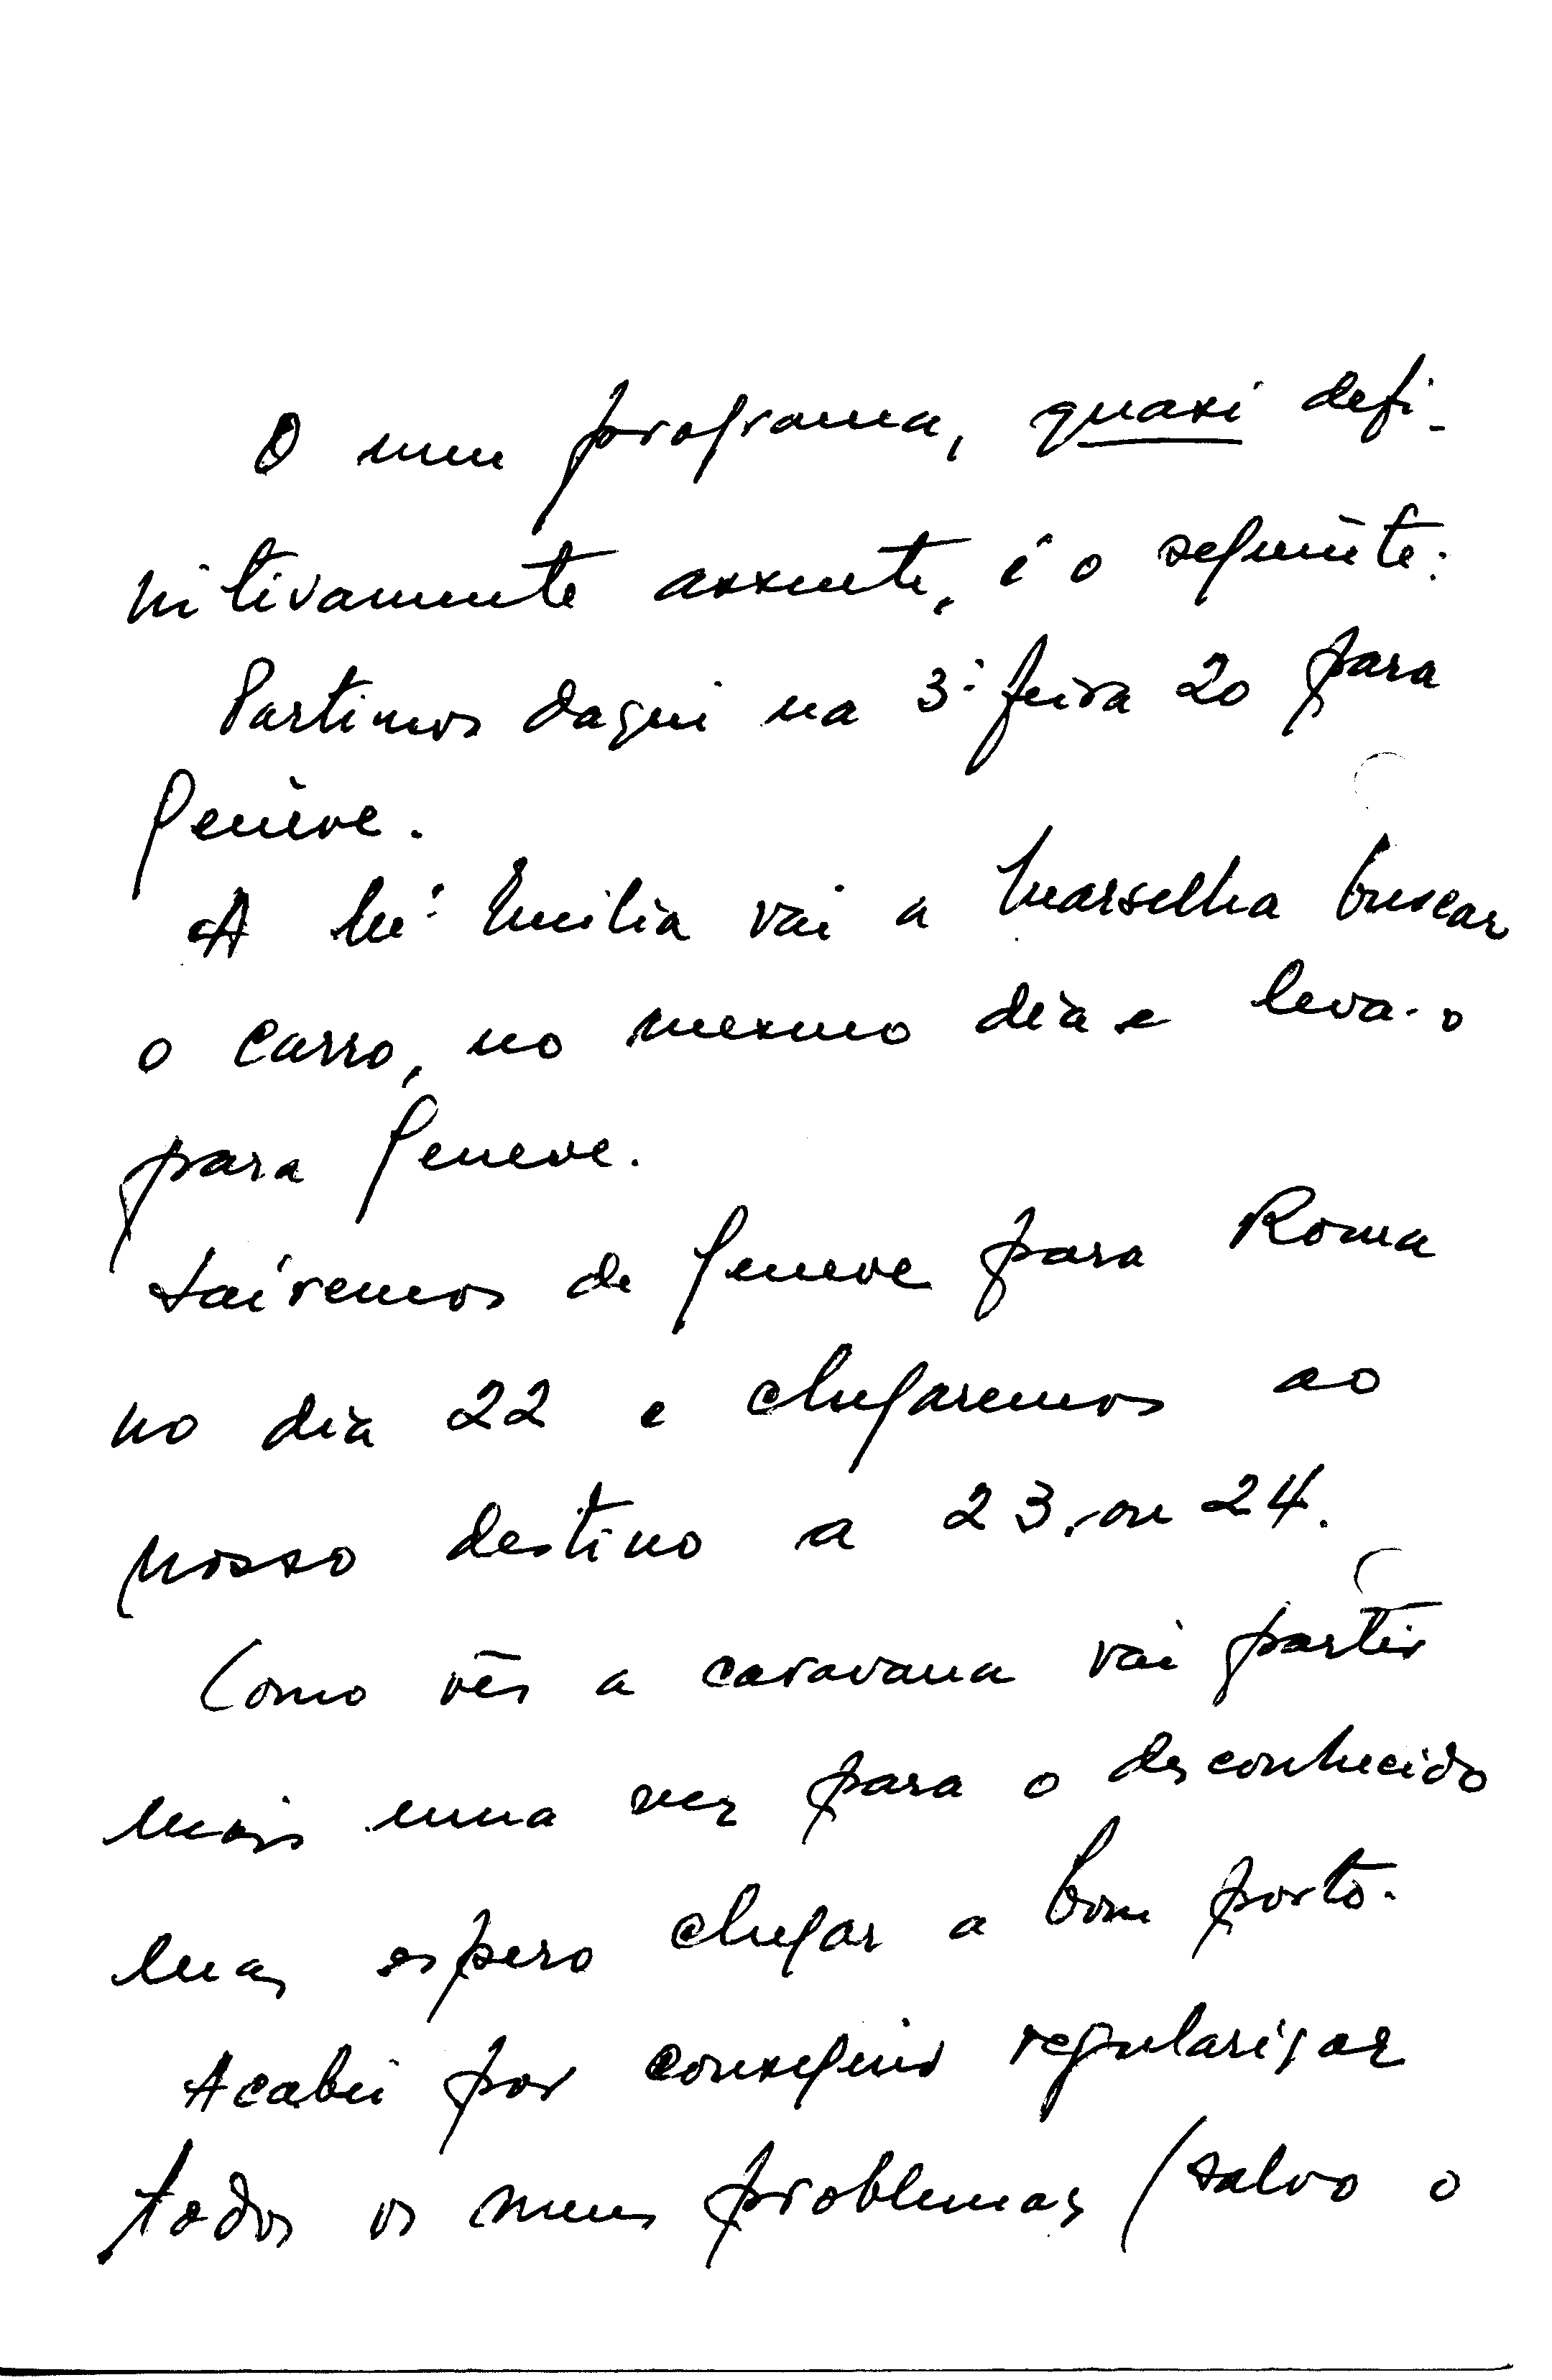 O meu programa, quasi defi-
nitivamente assente, é o seguinte:
Partimos daqui na 3ª feira 20 para
Genève.
A Mª Emilia vai a Marselha buscar
o carro, no mesmo dia e leva-o
para Geneve.
Sairemos de Geneve para Roma
no dia 22 e chegaremos ao
nosso destino a 23, ou 24.
Como vês a caravana vai partir
mais uma vez para o desconhecido
mas espero chegar a bom porto.
Acabei por conseguir regularisar
todos os meus problemas (salvo o